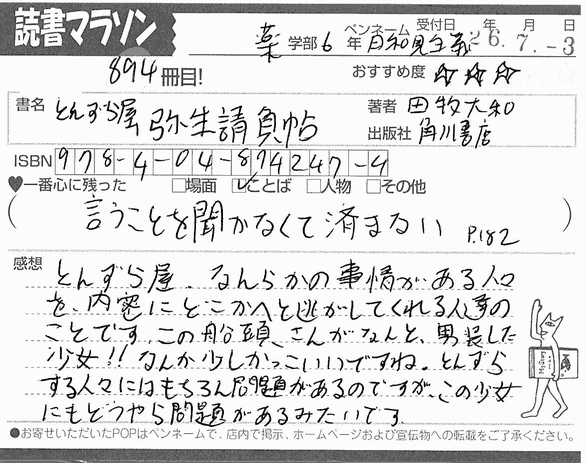 読書マラソン
薬 学部 6 年
ペンネーム 日和見主義
受付日 年 月 日
26.7.-3
894 冊目!
おすすめ度 ☆☆☆
書名 とんずら屋 弥生請負帖
著者 田牧大和
出版社 角川書店
ISBN 978-4-04-874247-4
♥一番心に残った □場面 ☑ことば □人物 □その他
(言うことを聞かなくて済まない P.182)
感想
とんずら屋、なんらかの事情がある人々
を、内密にどこかへと逃がしてくれる人達の
ことです。この船頭さんがなんと、男装した
少女!!なんか少しかっこいいですね。とんずら
する人々にはもちろん問題があるのですが、この少女
にもどうやら問題があるみたいです。
●お寄せいただいたPOPはペンネームで、店内で掲示、ホームページおよび宣伝物への転載をご了承ください。